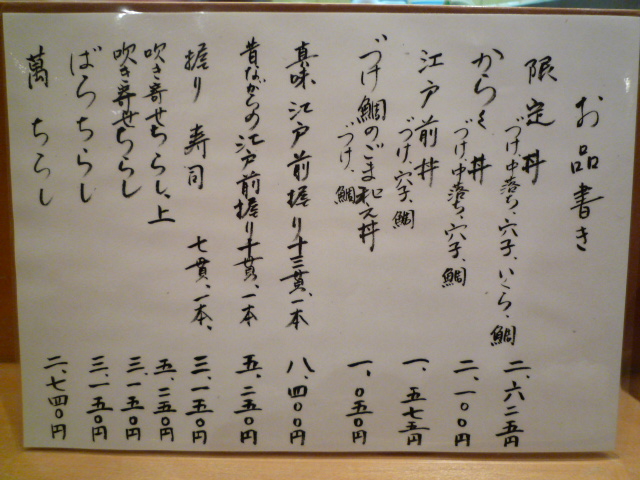 お品書き
限定丼 づけ、中落ち、穴子、いくら、鯛 二、六二五円
からく丼 づけ、中落ち、穴子、鯛 二、一〇〇円
江戸前丼 づけ、穴子、鯛 一、五七五円
づけ鯛のごま和え丼 づけ、鯛 一、〇五〇円
真味江戸前握り 十三貫、一本 八、四〇〇円
昔ながらの江戸前握り 十貫、一本 五、二五〇円
握り寿司 七貫、一本、 三、一五〇円
吹き寄せちらし、上 五、二五〇円
吹き寄せちらし 三、一五〇円
ばらちらし 三、一五〇円
萬ちらし 二、七四〇円